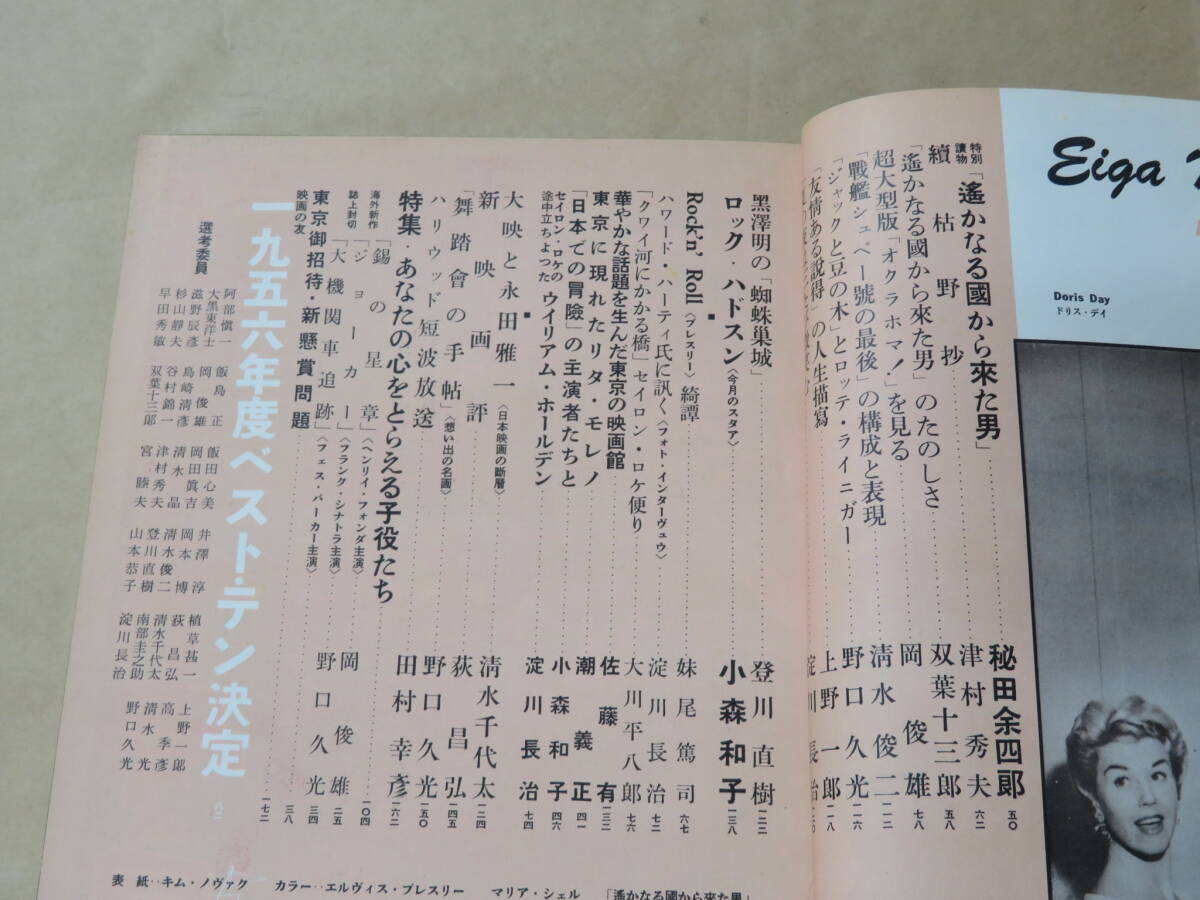 Eiga
Doris Day
ドリス・デイ
特別讀物「遙かなる國から來た男」 秘田余四郎 五〇
續 枯野抄 津村秀夫 六二
「遙かなる國から來た男」のたのしさ 双葉十三郎 五八
超大型版「オクラホマ!」を見る 岡俊雄 七八
「戰艦シュペー號の最後」の構成と表現 清水俊二 一一二
「ジャックと豆の木」とロッテ・ライニガー 野口久光 一一六
「友情ある説得」の人生描寫 上野一郎 一一八
淀川長治
黑澤明の「蜘蛛巢城」 登川直樹 一二二
ロック・ハドスン〈今月のスタア〉 小森和子 一三八
■
Rock'n' Roll〈プレスリー〉綺譚 妹尾篤司 六七
ハワード・ハーティ氏に訊く〈フォト・インターヴュウ〉 淀川長治 七二
「クワイ河にかかる橋」セイロン・ロケ便り 大川平八郎 七六
華やかな話題を生んだ東京の映画館 佐藤有 一三二
東京に現れたリタ・モレノ 潮義正 四一
「日本での冒險」の主演者たちと 小森和子 四六
セイロン・ロケの途中立ちよつた ウイリアム・ホールデン 淀川長治 七四
■
大映と永田雅一〈日本映画の斷層〉 清水千代太 一二四
新映画評
「舞踏會の手帖」〈想い出の名画〉 荻昌弘 一四五
ハリウッド短波放送 野口久光 一五〇
特集・あなたの心をとらえる子役たち 田村幸彦 一六二
海外新作誌上封切
「錫の星章」〈ヘンリイ・フォンダ主演〉 一〇四
「ジョーカー」〈フランク・シナトラ主演〉 岡俊雄 二五
「大機関車追跡」〈フェス・パーカー主演〉 野口久光 三四
東京御招待・新懸賞問題 三八
映画の友 一七二
一九五六年度ベスト・テン決定
選考委員
阿部愼一 飯島正 飯田心美 井澤淳 植草甚一 上野一郎
大黒東洋士 岡俊雄 岡田眞吉 岡本博 荻昌弘 高季彦
滋野辰彦 島崎清彦 清水晶 清水俊二 清水千代太 清水光
杉山靜夫 谷村錦一 津村秀夫 登川直樹 南部圭之助 野口久光
早田秀敏 双葉十三郎 宮睦夫 山本恭子 淀川長治
表紙‥キム・ノヴァク カラー‥エルヴィス・プレスリー マリア・シェル 「遙かなる國から來た男」